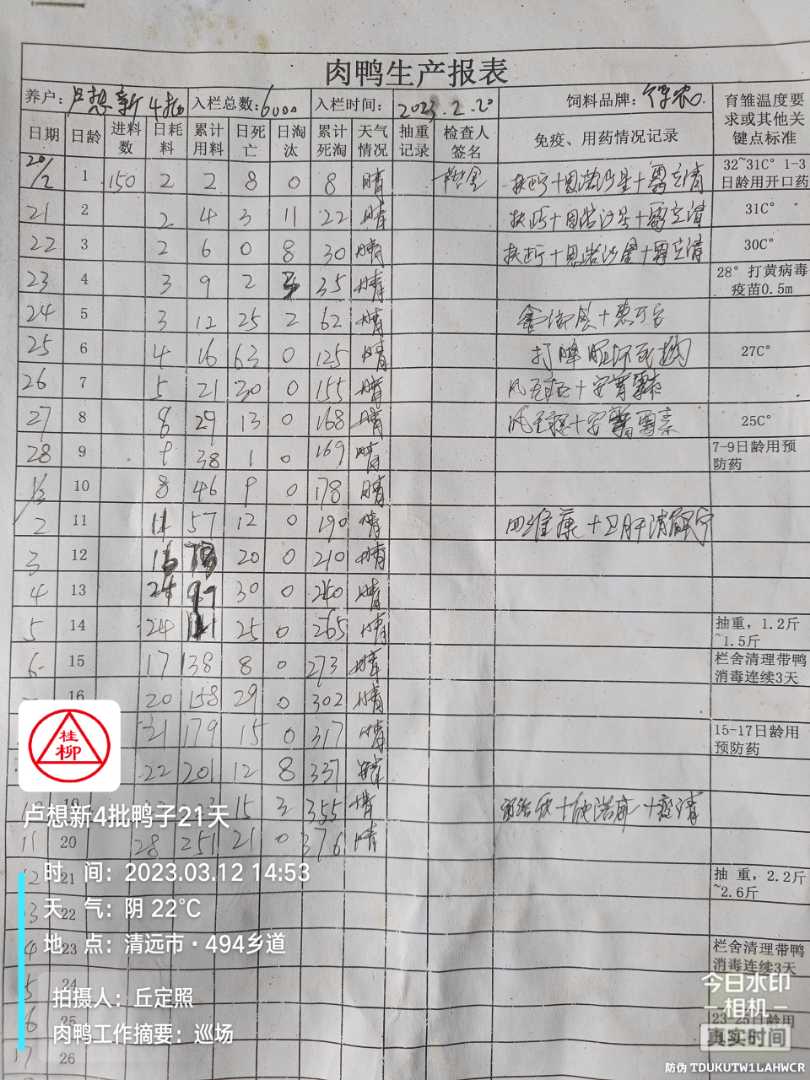 肉鸭生产报表
养户: 卢想新 4批 入栏总数: 6000 入栏时间: 2023.2.20 饲料品牌: 育雏温度要求或其他关键点标准
日期 日龄 进料数 日耗料 累计用料 日死亡 日淘汰 累计死淘 天气情况 抽重记录 检查人签名 免疫、用药情况记录
20/2 1 150 2 2 8 0 8 晴 扶正+恩诺沙星+霉立清 32~31C° 1-3日龄用开口药
21 2 2 4 3 11 22 晴 扶正+恩诺沙星+霉立清 31C°
22 3 2 6 0 8 30 晴 扶正+恩诺沙星+霉立清 30C°
23 4 3 9 2 3 35 晴 28° 打黄病毒疫苗0.5m
24 5 3 12 25 2 62 晴
25 6 4 16 63 0 125 晴 27C°
26 7 5 21 30 0 155 晴
27 8 8 29 13 0 168 晴 25C°
28 9 9 38 1 0 169 晴 7-9日龄用预防药
1/3 10 8 46 9 0 178 晴
2 11 11 57 12 0 190 晴
3 12 20 0 210 晴
4 13 30 0 240 晴
5 14 24 25 0 265 晴 抽重,1.2斤~1.5斤
6 15 17 138 8 0 273 晴 栏舍清理带鸭消毒连续3天
16 20 158 29 0 302 晴
21 179 15 0 317 晴 15-17日龄用预防药
22 201 12 8 337
19 15 3 355 晴
11 20 28 251 21 0 376 晴
12 21 抽重,2.2斤~2.6斤
13 22
14 23 栏舍清理带鸭消毒连续3天
5 24
6 25 23-25日龄用
17 26
桂柳
卢想新4批鸭子21天
时 间: 2023.03.12 14:53
天 气: 阴 22℃
地 点: 清远市·494乡道
拍摄人: 丘定照
肉鸭工作摘要: 巡场
今日水印
相机
真实时间
防伪 TDUKUTW1LAHWCR